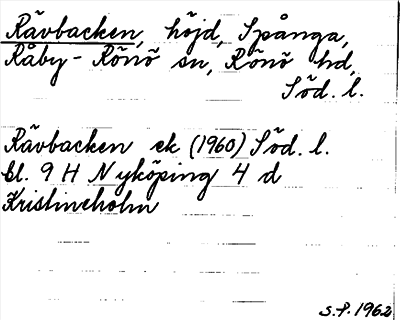 Rävbacken, höjd, Spånga,
Råby-Rönö sn, Rönö hd,
Söd. l.
Rävbacken ek (1960) Söd. l.
bl. 9 H Nyköping 4 d
Kristineholm
S.P. 1962